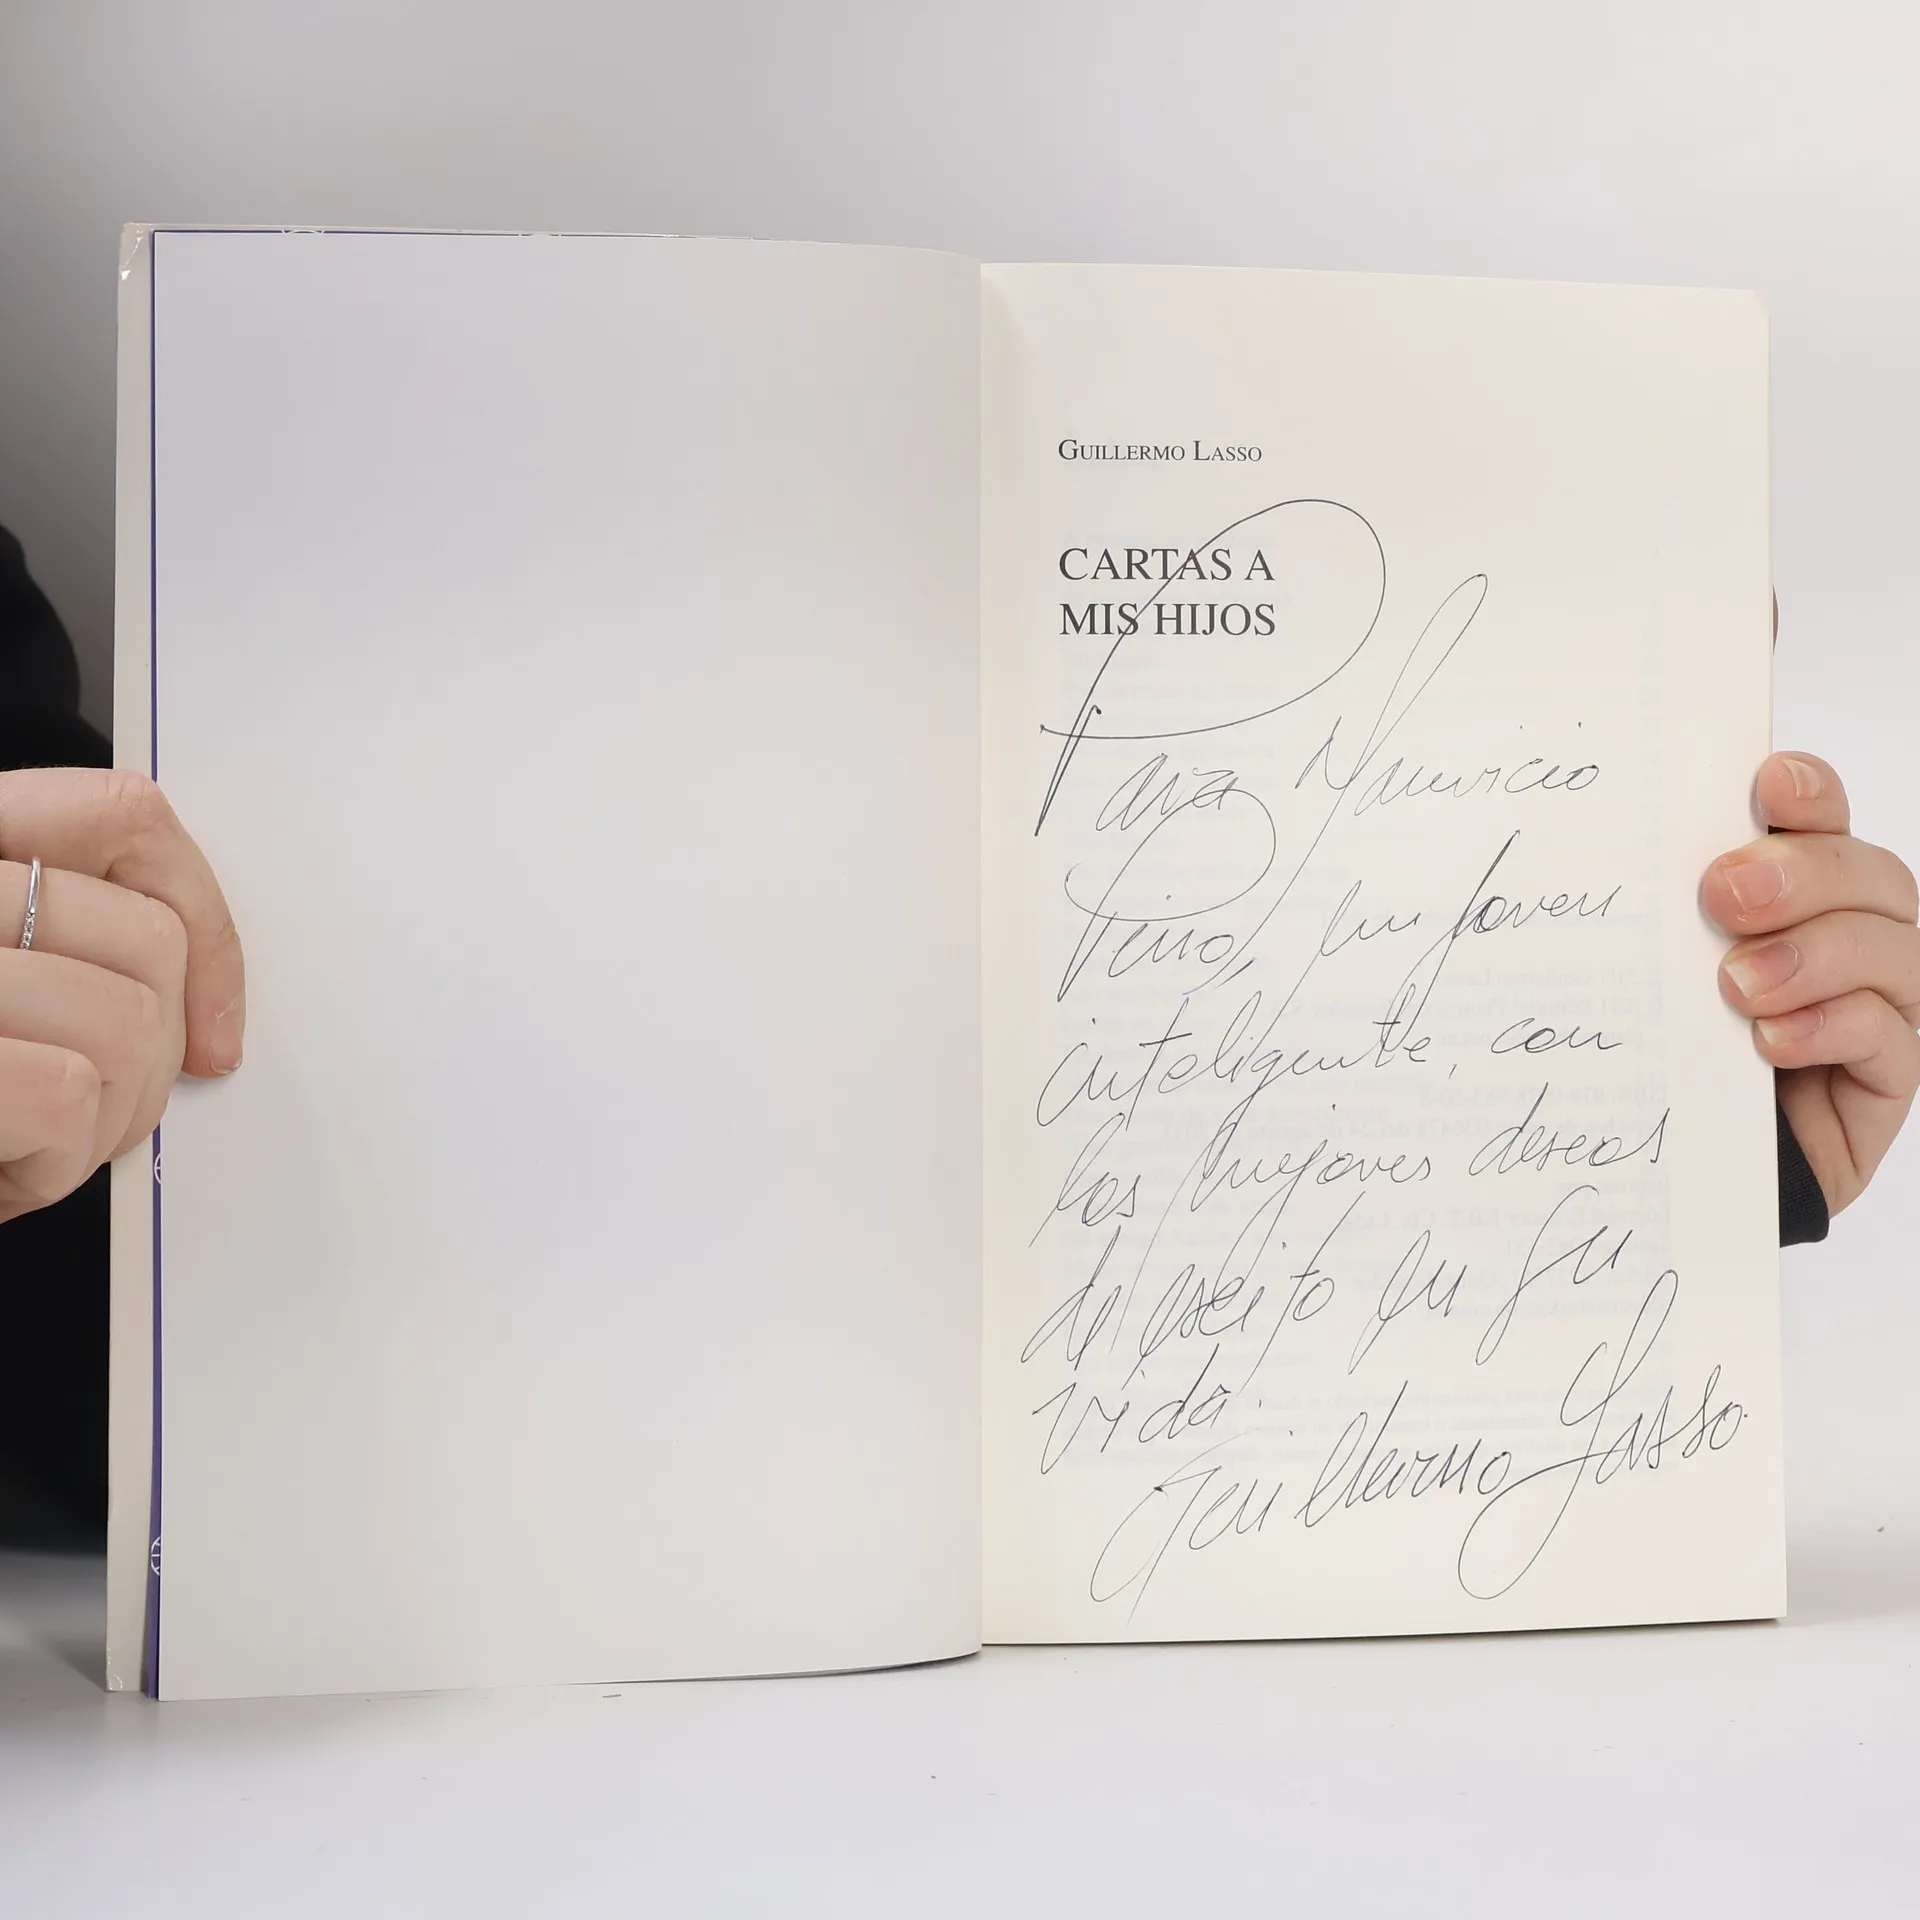 GUILLERMO LASSO
CARTAS A
MIS HIJOS
Para Mauricio
Pino, un joven
inteligente, con
los mejores deseos
de éxito en su
vida.
Guillermo Lasso